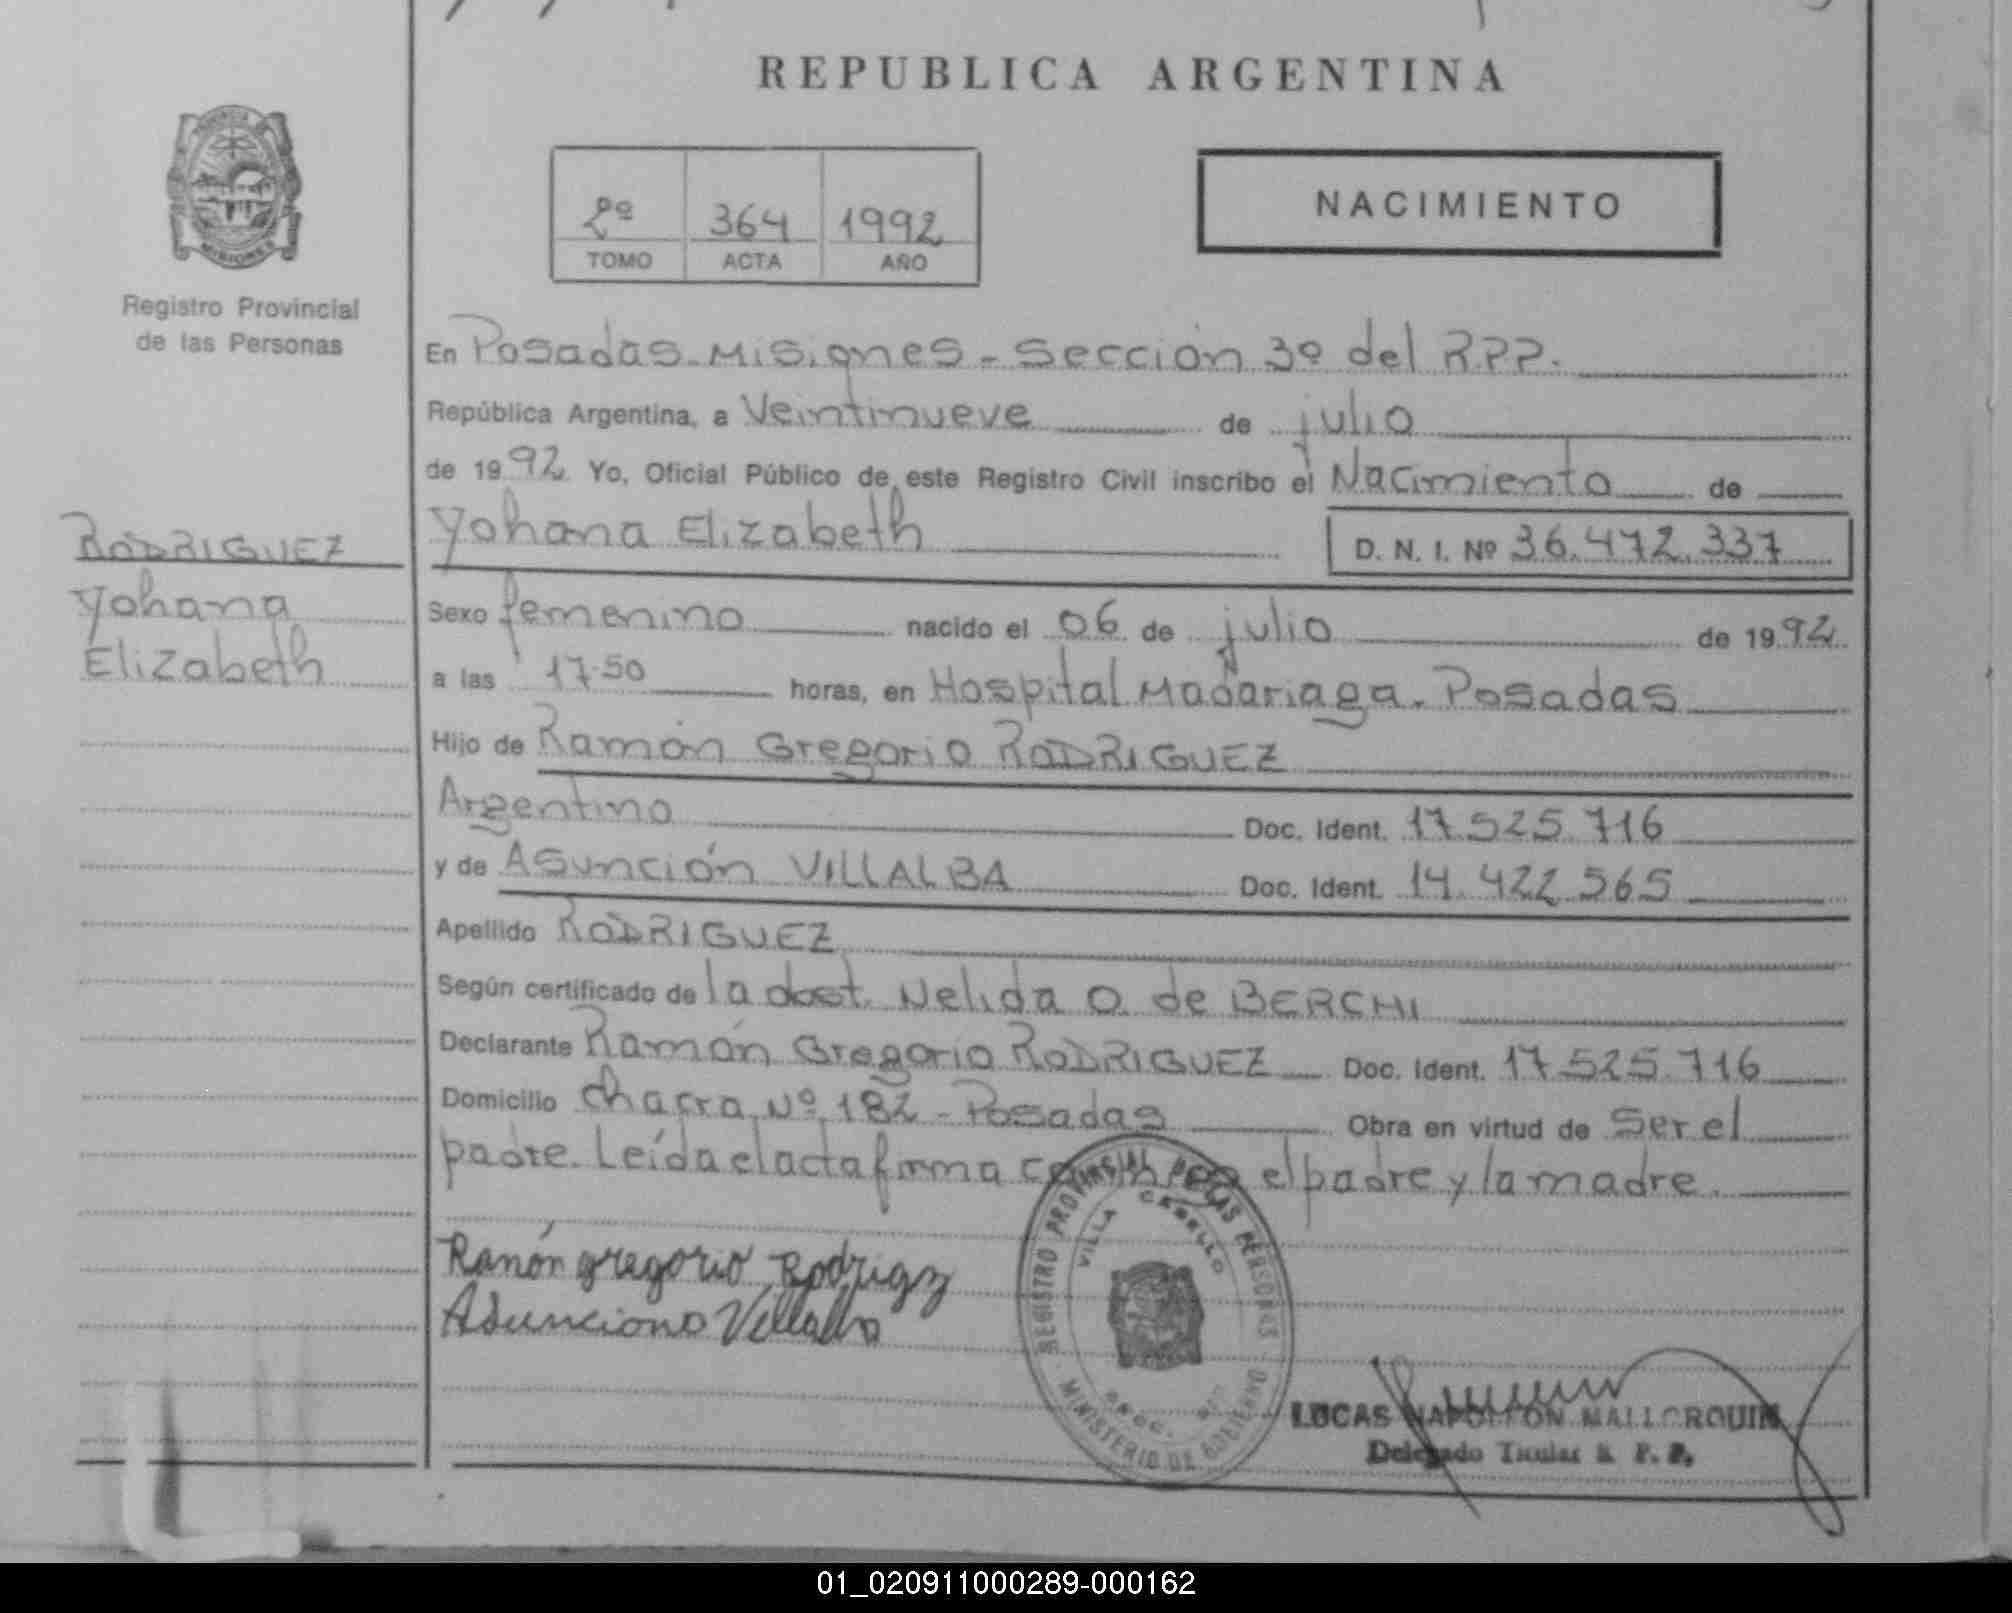 REPUBLICA ARGENTINA
NACIMIENTO
2º 364 1992
TOMO ACTA AÑO
Registro Provincial
de las Personas
En Posadas - Misiones - Sección 3º del R.P.P.
República Argentina, a Veintinueve de julio
de 1992 Yo, Oficial Público de este Registro Civil inscribo el Nacimiento de
Yohana Elizabeth D. N. I. Nº 36.472.337
RODRIGUEZ
Yohana
Elizabeth
Sexo femenino nacido el 06 de julio de 1992
a las 17.50 horas, en Hospital Madariaga. Posadas
Hijo de Ramón Gregorio RODRIGUEZ
Argentino Doc. Ident. 17.525.716
y de Asunción VILLALBA Doc. Ident. 14.422.565
Apellido RODRIGUEZ
Según certificado de la doct. Nelida O. de BERCHI
Declarante Ramón Gregorio RODRIGUEZ Doc. Ident. 17.525.716
Domicilio Chacra Nº 182 - Posadas Obra en virtud de ser el
padre. Leída el acta firma conmigo el padre y la madre.
Ramón gregorio Rodrigz
Asunciono Villalba
REGISTRO PROVINCIAL DE LAS PERSONAS
VILLA CABELLO
MINISTERIO DE GOBIERNO
LUCAS NAPOLEON MALLORQUIN
Delegado Titular R. P. P.
01_020911000289-000162